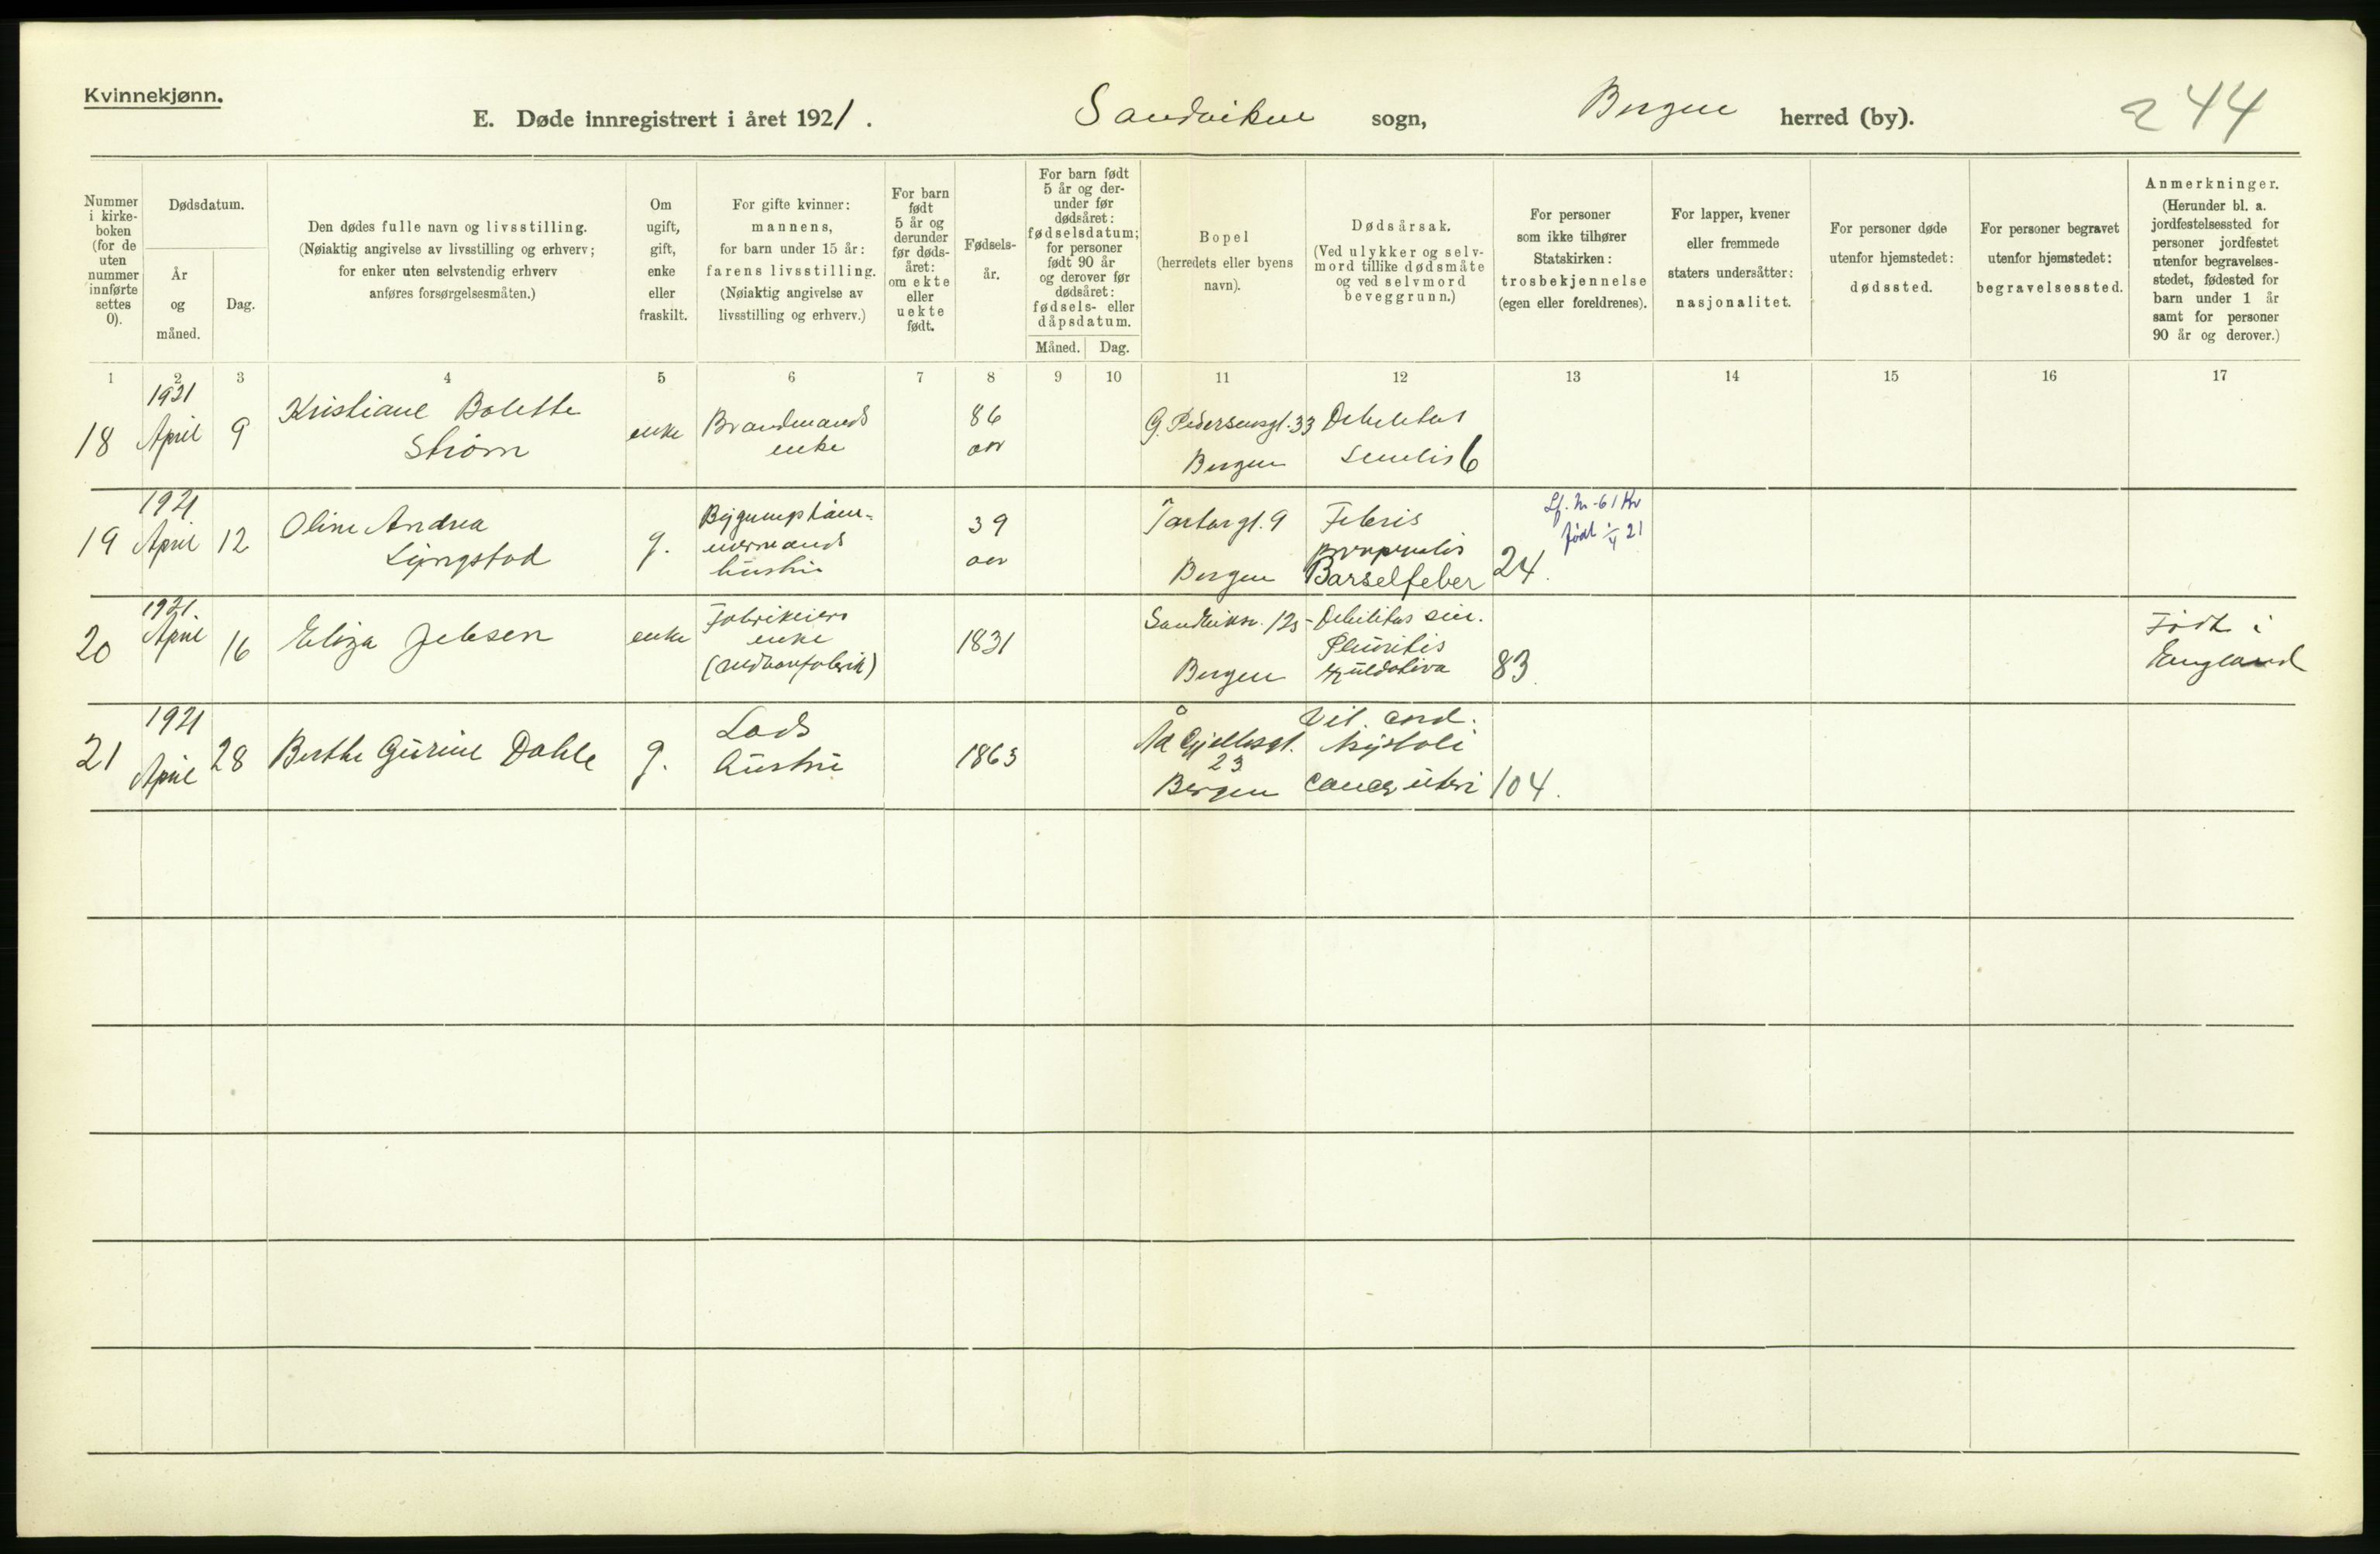 Kvinnekjønn.
E. Døde innregistrert i året 1921. Sandviken sogn, Bergen herred (by). 244
Nummer i kirke-boken (for de uten nummer innførte settes 0).
Dødsdatum.
År og måned.
Dag.
Den dødes fulle navn og livsstilling.
(Nøiaktig angivelse av livsstilling og erhverv;
for enker uten selvstendig erhverv
anføres forsørgelsesmåten.)
Om ugift, gift, enke eller fraskilt.
For gifte kvinner:
mannens,
for barn under 15 år:
farens livsstilling.
(Nøiaktig angivelse av
livsstilling og erhverv.)
For barn født 5 år og derunder før døds-året: om ekte eller uekte født.
Fødsels-år.
For barn født 5 år og der-under før dødsåret: fødselsdatum; for personer født 90 år og derover før dødsåret: fødsels- eller dåpsdatum.
Måned. Dag.
Bopel
(herredets eller byens
navn).
Dødsårsak.
(Ved ulykker og selv-
mord tillike dødsmåte
og ved selvmord
beveggrunn.)
For personer
som ikke tilhører
Statskirken:
trosbekjennelse
(egen eller foreldrenes).
For lapper, kvener
eller fremmede
staters undersåtter:
nasjonalitet.
For personer døde
utenfor hjemstedet:
dødssted.
For personer begravet
utenfor hjemstedet:
begravelsessted.
Anmerkninger.
(Herunder bl. a.
jordfestelsessted for
personer jordfestet
utenfor begravelses-
stedet, fødested for
barn under 1 år
samt for personer
90 år og derover.)
1 2 3 4 5 6 7 8 9 10 11 12 13 14 15 16 17
18
1921
April
9
Kristiane Bolette
Strøm
enke
Brandmands
enke
86
aar
G. Pedersensgt. 33
Bergen
Debilitas
senilis 6
19
1921
April
12
Oline Andrea
Lyngstad
g.
hustru
39
aar
Tartargt. 9
Bergen
Febris
puerperalis
Barselfeber 24.
Lf. Nr. 61 Kv
født 1/4 21
20
1921.
April
16
Eliza Jebsen
enke
Fabrikeiers
enke
1831
Sandviksv. 125
Bergen
Debilitas sen.
Pleuritis
exudativa 83.
Født i
England
21
1921
April
28
Berthe Gurine Dahle
g.
Lods
hustru
1863
Ad Gjellesgt.
23
Bergen
Vit. cord.
Asystoli
Cancer uteri 104.